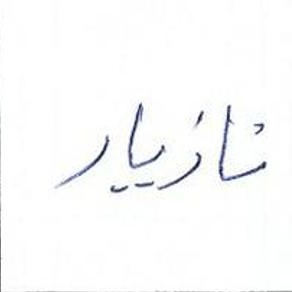 نازیار